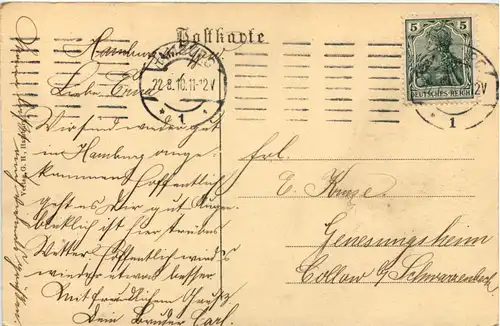 Postkarte
Hamburg
Liebe Erna
Wir sind wieder gut
in Hamburg ange
kommen. Hoffentlich
geht es Dir gut Augen
blicklich ist hier trübes
Wetter hoffentlich wird's
wieder etwas besser
Mit freundlichem Gruß
Dein Bruder Carl.
HAMBURG
22.8.10.11-12V
* 1 *
5 5
DEUTSCHES REICH
2V
1
Frl.
E. Kunze
Genesungsheim
Collow b/ Schwarzenbek